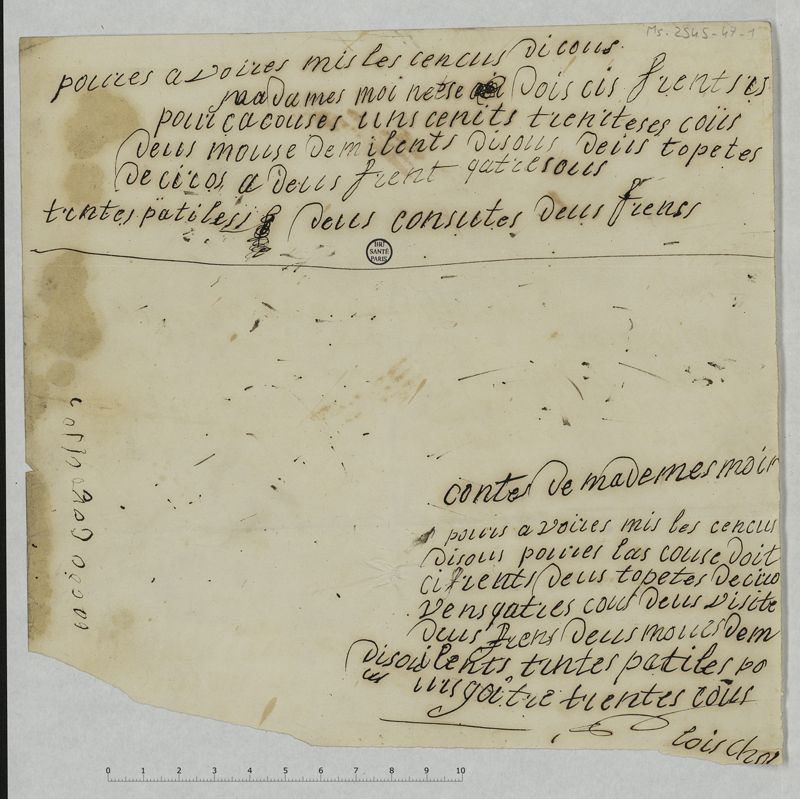 Ms. 2545-47-1
poures a voires mis les cencus di cous
madames moi nese dois cis frents is
pour cacouses uns cenits trenteses coüs
deus mouse demilents disous deus topetes
deciros a deus frent qatresous
trntes patiless deus consultes deus frens
BIU
SANTÉ
PARIS
contes de mademes moir
pours a voires mis les cencus
disous poures las couse doit
cifrents deus topetes deciro
vensqatres cous deus visite
deus frens deus moures dem
disou ilents trntes patiles po
urs gaitre trentes coüs
0 1 2 3 4 5 6 7 8 9 10